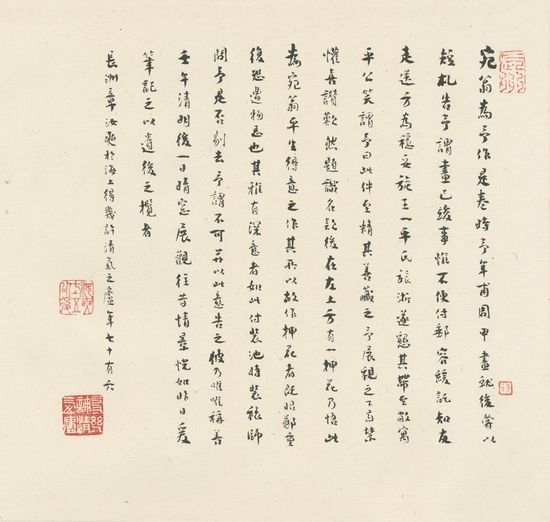 宛翁為予作是卷時予年甫周甲畫就後嘗以
短札告予謂畫已竣事惟不便付郵容緩託知友
走送方為穩妥旋王一平氏旅淅遂懇其帶至敝寓
平公笑謂予曰此件至精其善藏之予展觀之下不禁
懽喜讚歎然題識名款後在左上方有一押花乃悟此
為宛翁平生得意之作其所以故作押花者既昭鄭重
復恐遭物忌也其雅有深意者如此付裝池時裝裱師
問予是否剔去予謂不可并以此意告之彼乃唯唯稱善
壬午清明後一日晴窗展觀往昔情景恍如昨日爰
筆記之以遺後之攬者
長洲章汝奭於海上得幾許清氣之廬年七十有六